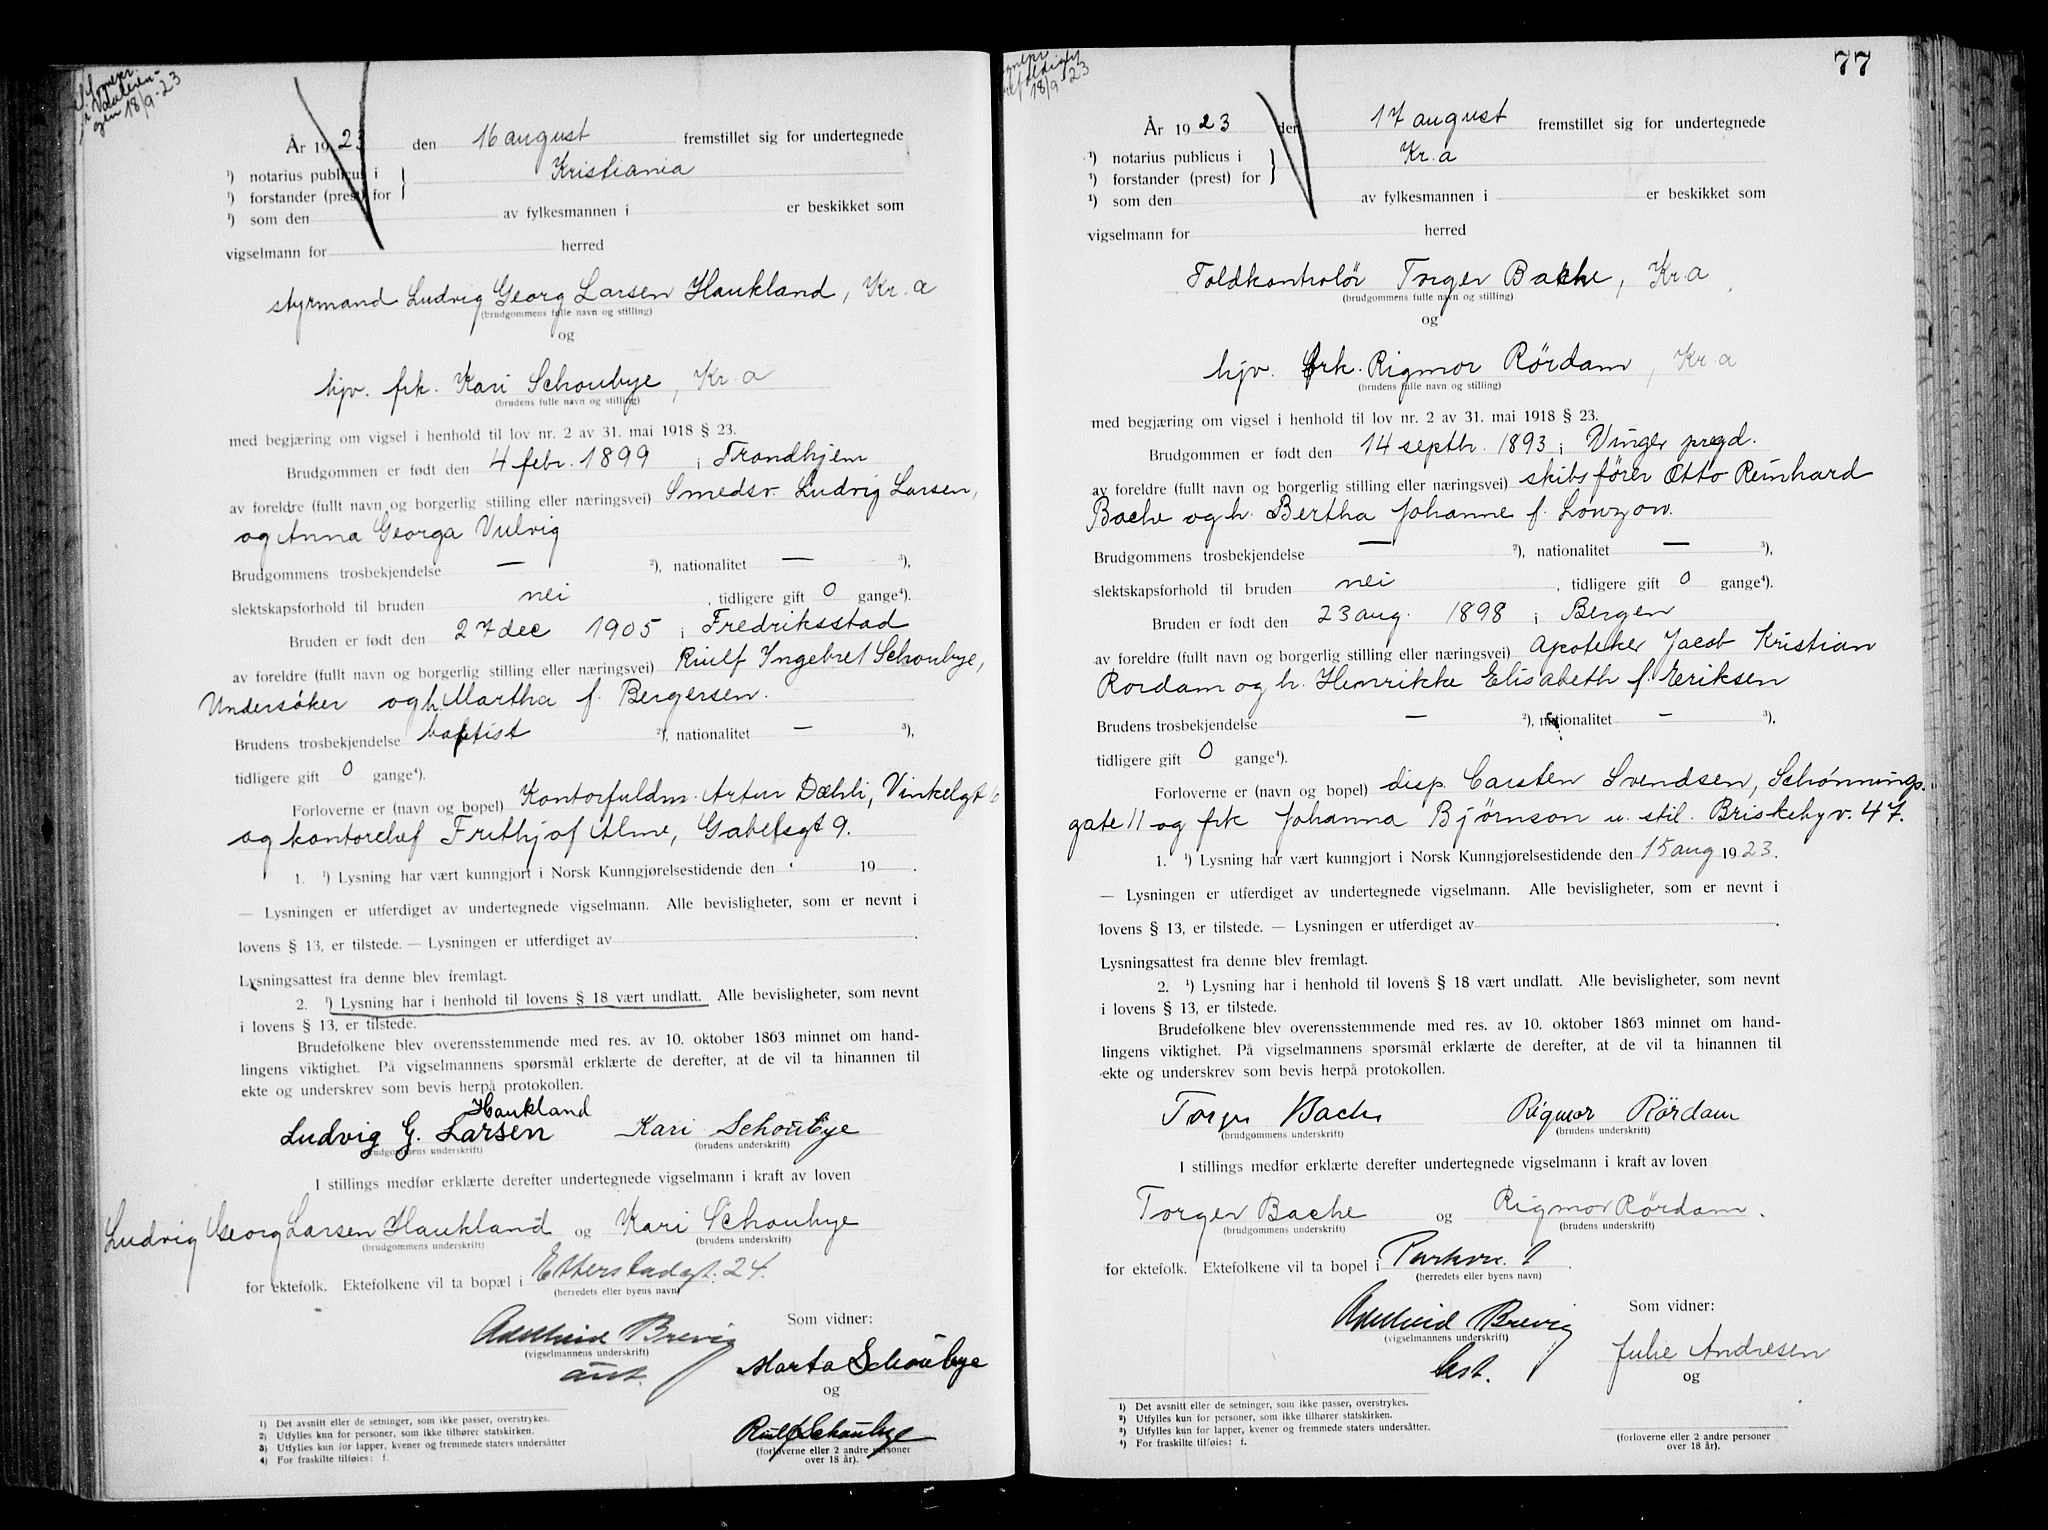 18/9-23
År 1923 den 16 august fremstillet sig for undertegnede
¹) notarius publicus i
Kristiania
¹) forstander (prest) for
¹) som den av fylkesmannen i er beskikket som
vigselmann for herred
styrmand Ludvig Georg Larsen Haukland, Kr.a
(brudgommens fulle navn og stilling)
og
hjv. frk. Kari Schoubye, Kr.a
(brudens fulle navn og stilling)
med begjæring om vigsel i henhold til lov nr. 2 av 31. mai 1918 § 23.
Brudgommen er født den 4 febr. 1899 i Trondhjem
av foreldre (fullt navn og borgerlig stilling eller næringsvei) Smedsv. Ludvig Larsen,
og Anna Georga Vulvig
Brudgommens trosbekjendelse — ²), nationalitet — ³),
slektskapsforhold til bruden nei, tidligere gift 0 gange⁴).
Bruden er født den 27 dec 1905 i Fredriksstad
av foreldre (fullt navn og borgerlig stilling eller næringsvei) Riulf Ingebret Schoubye,
Undersøker og h. Martha f. Bergersen.
Brudens trosbekjendelse baptist ²), nationalitet — ³),
tidligere gift 0 gange⁴).
Forloverne er (navn og bopel) Kontorfuldm. Artur Dæhli, Vinkelgt 6
og kontorchef Frithjof Alme, Gabelsgt 9.
1. ¹) Lysning har vært kunngjort i Norsk Kunngjørelsestidende den 19 .
— Lysningen er utferdiget av undertegnede vigselmann. Alle bevisligheter, som er nevnt i
lovens § 13, er tilstede. — Lysningen er utferdiget av .
Lysningsattest fra denne blev fremlagt.
2. ¹) Lysning har i henhold til lovens § 18 vært undlatt. Alle bevisligheter, som nevnt
i lovens § 13, er tilstede.
Brudefolkene blev overensstemmende med res. av 10. oktober 1863 minnet om hand-
lingens viktighet. På vigselmannens spørsmål erklærte de derefter, at de vil ta hinannen til
ekte og underskrev som bevis herpå protokollen.
Haukland
Ludvig G. Larsen Kari Schoubye
(brudgommens underskrift) (brudens underskrift)
I stillings medfør erklærte derefter undertegnede vigselmann i kraft av loven
Ludvig Georg Larsen Haukland og Kari Schoubye
(brudgommens underskrift) (brudens underskrift)
for ektefolk. Ektefolkene vil ta bopæl i Etterstadgt. 24.
(herredets eller byens navn)
Som vidner:
Adelheid Brevig
(vigselmannens underskrift)
Marta Schoubye
og
Riulf Schoubye
(forloverne eller 2 andre personer
over 18 år).
1) Det avsnitt eller de setninger, som ikke passer, overstrykes.
2) Utfylles kun for personer, som ikke tilhører statskirken.
3) Utfylles kun for lapper, kvener og fremmede staters undersåtter
4) For fraskilte tilføies: f.
77
18/9-23
År 1923 den 17 august fremstillet sig for undertegnede
¹) notarius publicus i
Kr.a
¹) forstander (prest) for
¹) som den av fylkesmannen i er beskikket som
vigselmann for herred
Toldkontrolør Torger Bache, Kr.a
(brudgommens fulle navn og stilling)
og
hjv. frk. Rigmor Rördam, Kr.a
(brudens fulle navn og stilling)
med begjæring om vigsel i henhold til lov nr. 2 av 31. mai 1918 § 23.
Brudgommen er født den 14 septbr. 1893 i Vinger pregd.
av foreldre (fullt navn og borgerlig stilling eller næringsvei) skibsfører Otto Reinhard
Bache og h. Bertha Johanne f. Lowzow.
Brudgommens trosbekjendelse — ²), nationalitet — ³),
slektskapsforhold til bruden nei, tidligere gift 0 gange⁴).
Bruden er født den 23 aug. 1898 i Bergen
av foreldre (fullt navn og borgerlig stilling eller næringsvei) Apoteker Jacob Kristian
Rordam og h. Henrikke Elisabeth f. Eriksen
Brudens trosbekjendelse — ²), nationalitet — ³),
tidligere gift 0 gange⁴).
Forloverne er (navn og bopel) disp. Carsten Svendsen, Schønnings
gate 11 og frk Johanna Bjørnson u. stil. Briskebyv. 47.
1. ¹) Lysning har vært kunngjort i Norsk Kunngjørelsestidende den 15 aug 1923.
— Lysningen er utferdiget av undertegnede vigselmann. Alle bevisligheter, som er nevnt i
lovens § 13, er tilstede. — Lysningen er utferdiget av .
Lysningsattest fra denne blev fremlagt.
2. ¹) Lysning har i henhold til lovens § 18 vært undlatt. Alle bevisligheter, som nevnt
i lovens § 13, er tilstede.
Brudefolkene blev overensstemmende med res. av 10. oktober 1863 minnet om hand-
lingens viktighet. På vigselmannens spørsmål erklærte de derefter, at de vil ta hinannen til
ekte og underskrev som bevis herpå protokollen.
Torger Bache Rigmor Rördam
(brudgommens underskrift) (brudens underskrift)
I stillings medfør erklærte derefter undertegnede vigselmann i kraft av loven
Torger Bache og Rigmor Rördam.
(brudgommens underskrift) (brudens underskrift)
for ektefolk. Ektefolkene vil ta bopel i Parkvn. 1
(herredets eller byens navn)
Som vidner:
Adelheid Brevig
(vigselmannens underskrift)
Julie Andresen
og
(forloverne eller 2 andre personer
over 18 år).
1) Det avsnitt eller de setninger, som ikke passer, overstrykes.
2) Utfylles kun for personer, som ikke tilhører statskirken.
3) Utfylles kun for lapper, kvener og fremmede staters undersåtter.
4) For fraskilte tilføies: f.